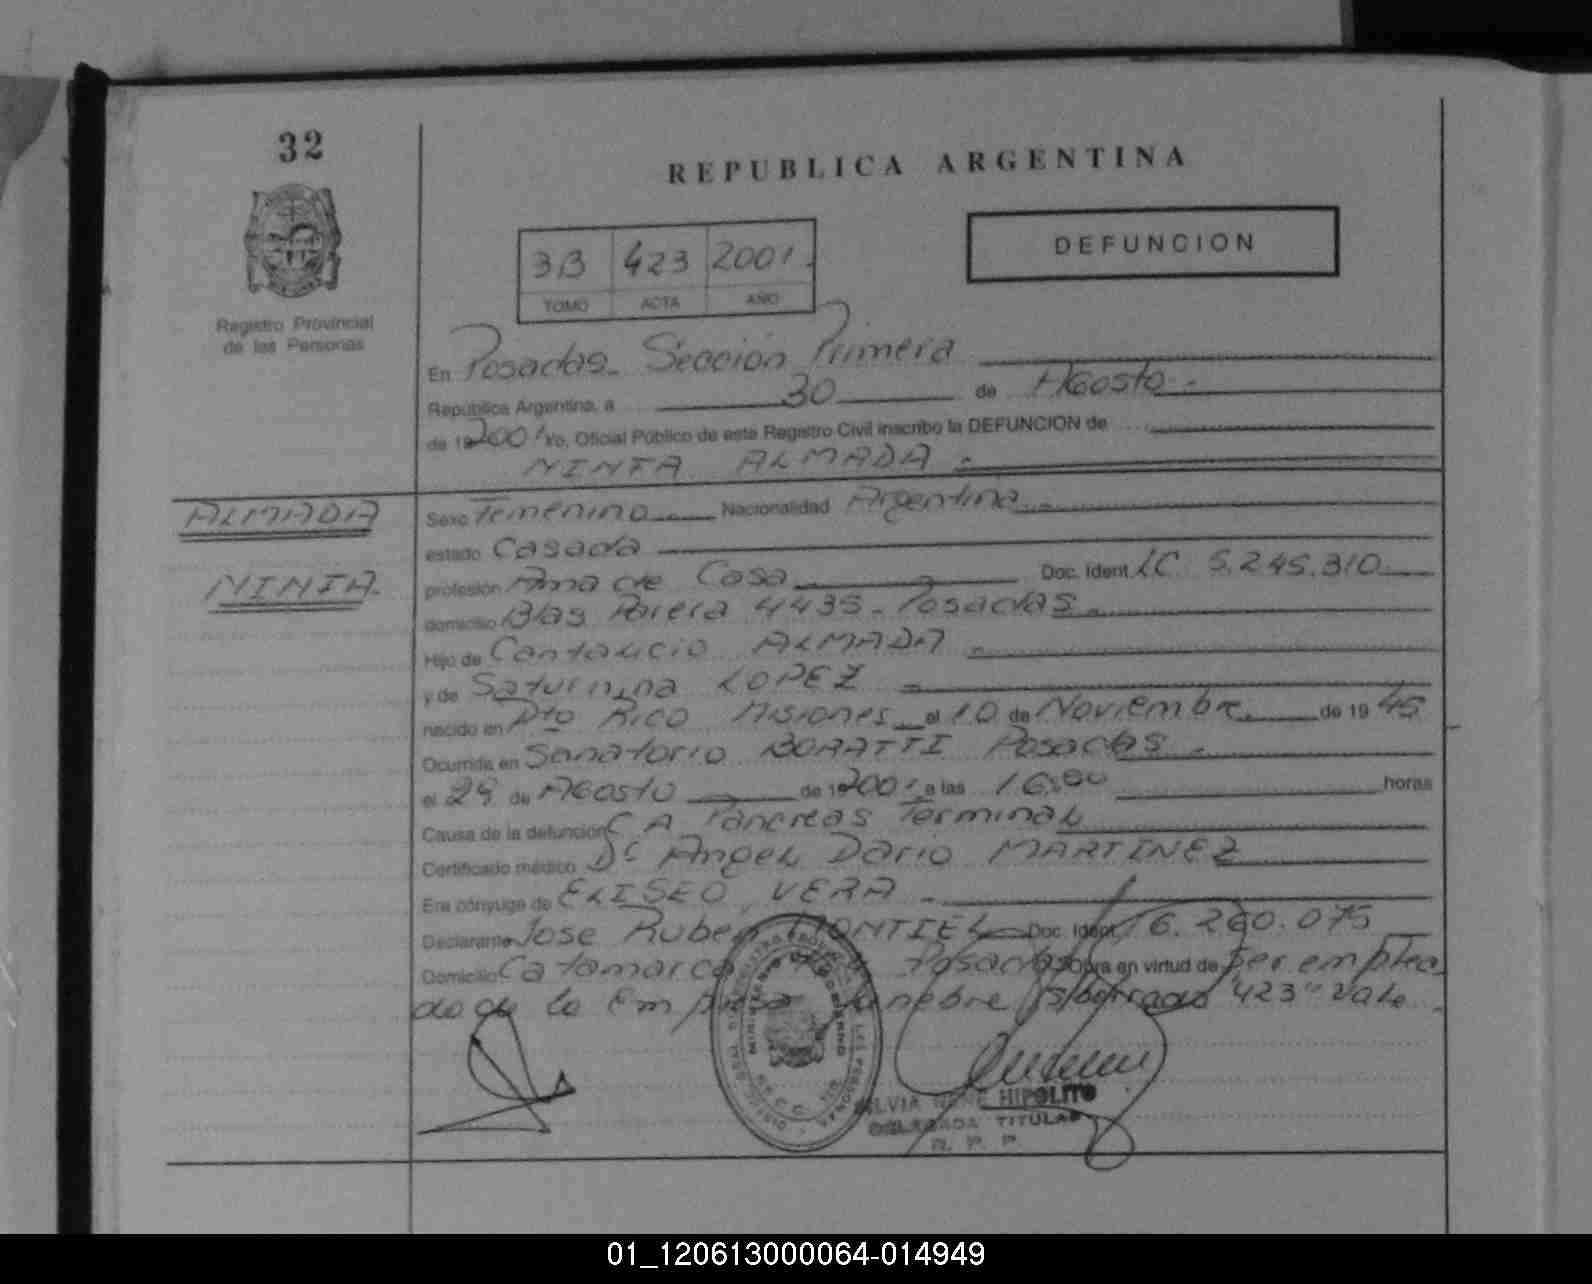 32
REPUBLICA ARGENTINA
Registro Provincial
de las Personas
3B 423 2001.
TOMO ACTA AÑO
DEFUNCION
En Posadas. Sección Primera
República Argentina, a 30 de Agosto.-
de 192001 Yo, Oficial Público de este Registro Civil inscribo la DEFUNCION de
NINFA ALMADA.-
ALMADA
NINFA.
Sexo Femenino.- Nacionalidad Argentina.-
estado Casada
profesión Ama de Casa Doc. Ident. LC 5.245.310
domicilio Blas Parera 4435 - Posadas.
Hijo de Cantalicio ALMADA.
y de Saturnina LOPEZ
nacido en Pto Rico Misiones el 10 de Noviembre. de 19 45
Ocurrida en Sanatorio BORATTI Posadas.
el 29 de Agosto de 192001 a las 16:00 horas
Causa de la defunción CA Páncreas Terminal
Certificado médico Dr Angel Dario MARTINEZ
Era cónyuge de ELISEO VERA.
Declarante Jose Ruben MONTIEL Doc. Ident. 16.260.075
Domicilio Catamarca Posadas Obra en virtud de ser emplea
do de la Empresa Fúnebre. S/borrado "423" Vale.
MINISTERIO DE GOBIERNO
SILVIA RENE HIPOLITO
DELEGADA TITULAR
R. P. P.
01_120613000064-014949